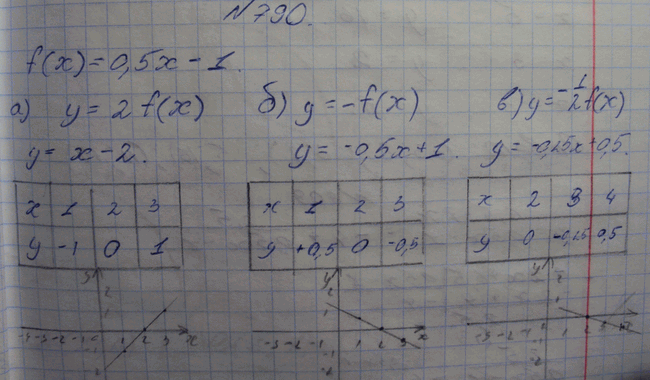 №790.
f(x)=0,5x-1.
а) y=2f(x) б) y=-f(x) в) y=-1/2f(x)
y=x-2. y=-0,5x+1. y=-0,25x+0,5.
x 1 2 3 x 1 2 3 x 2 3 4
y -1 0 1 y +0,5 0 -0,5 y 0 -0,25 0,5
y y y
2 2 2
1 1 1
1 2 3 x -3 -2 -1 1 2 3 x 1 2 3
-1 -1